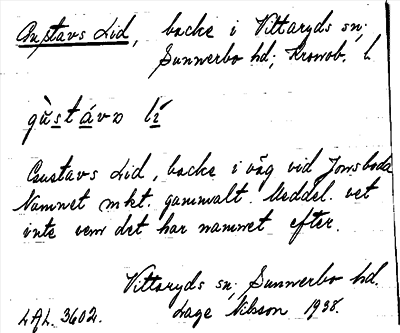 Gustavs Lid, backe i Vittaryds sn;
Sunnerbo hd; Kronob. l.
gùstávs lí
Gustavs Lid, backe i väg vid Jonsboda
Namnet mkt. gammalt. Meddel. vet
inte vem det har namnet efter.
Vittaryds sn; Sunnerbo hd.
LAL. 3602. Lage Nilsson 1938.